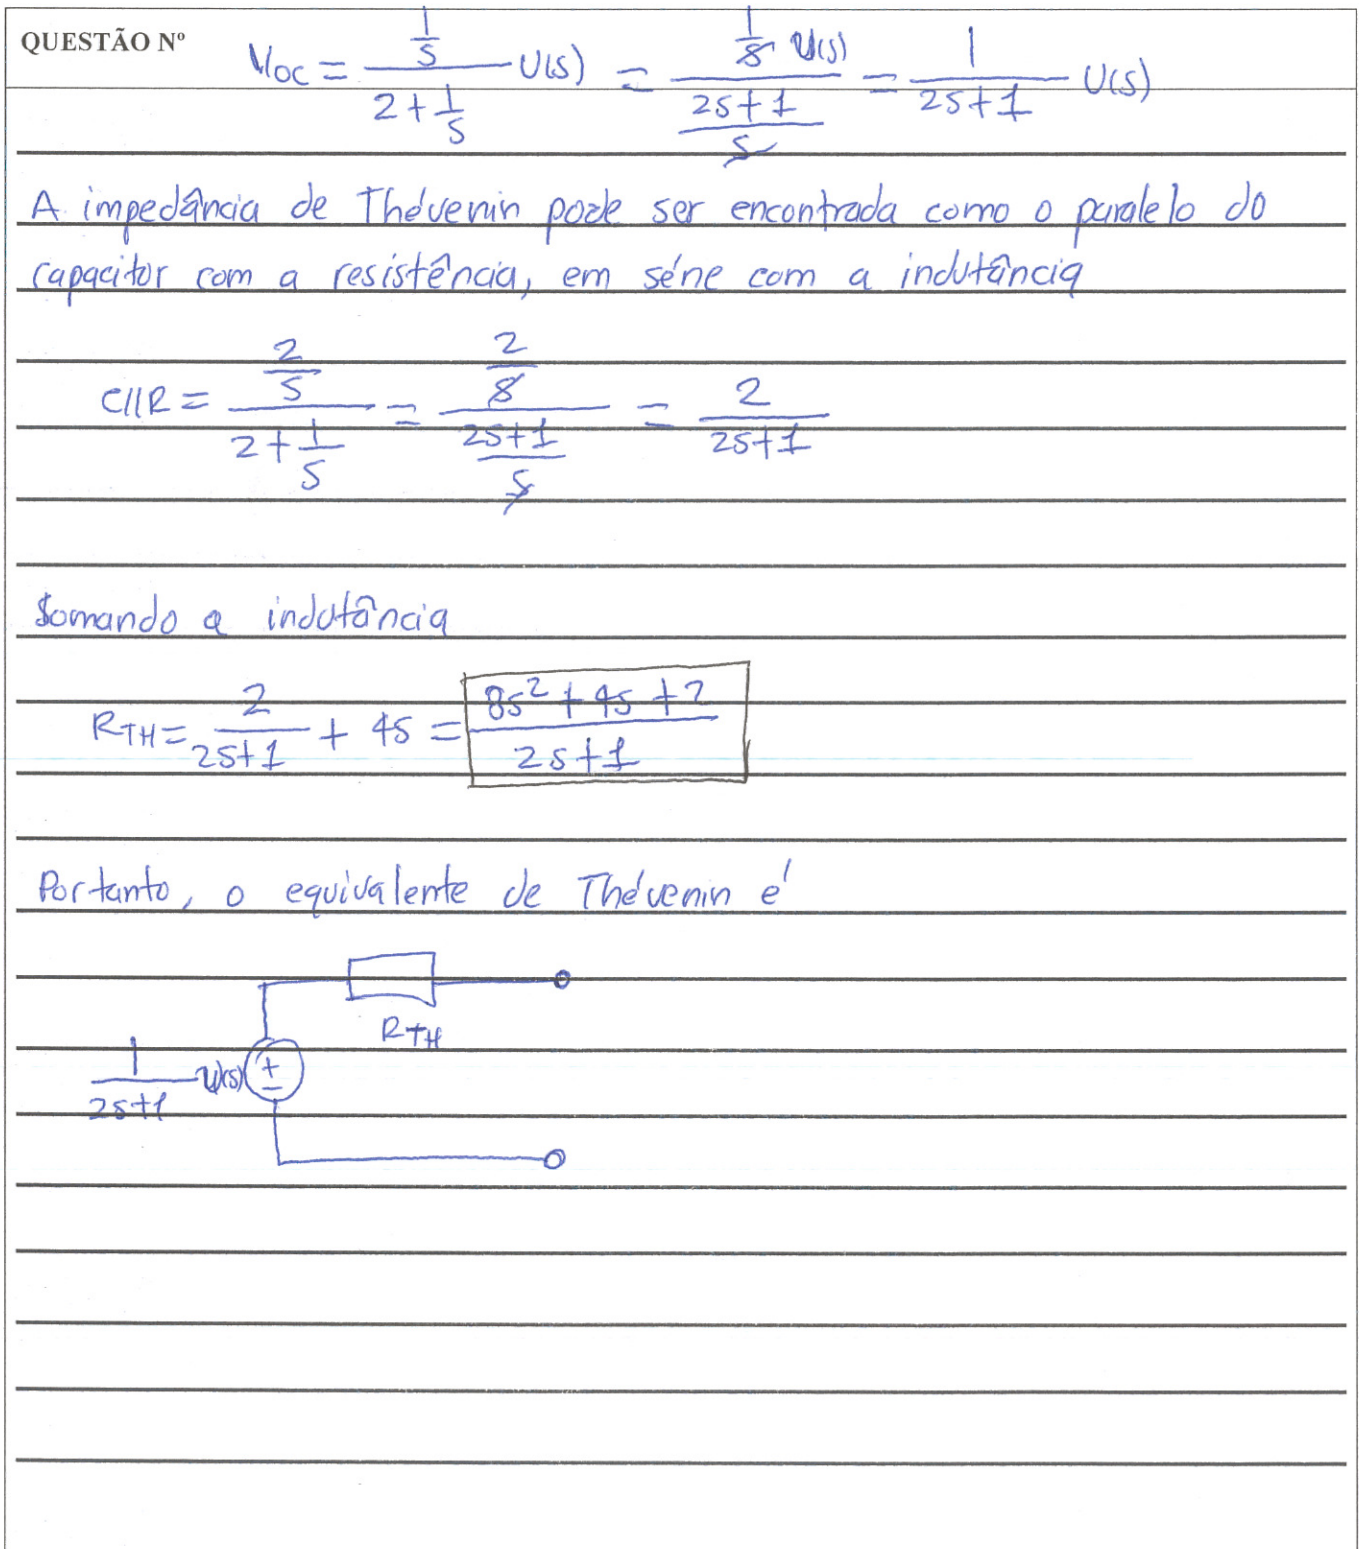 QUESTÃO Nº
Voc = (1/s)/(2 + 1/s) U(s) = (1/s U(s))/((2s+1)/s) = 1/(2s+1) U(s)
A impedância de Thévenin pode ser encontrada como o paralelo do
capacitor com a resistência, em série com a indutância
C//R = (2/s)/(2 + 1/s) = (2/s)/((2s+1)/s) = 2/(2s+1)
Somando a indutância
RTH = 2/(2s+1) + 4s = (8s² + 4s + 2)/(2s+1)
Portanto, o equivalente de Thévenin é
RTH
1/(2s+1) U(s) + -